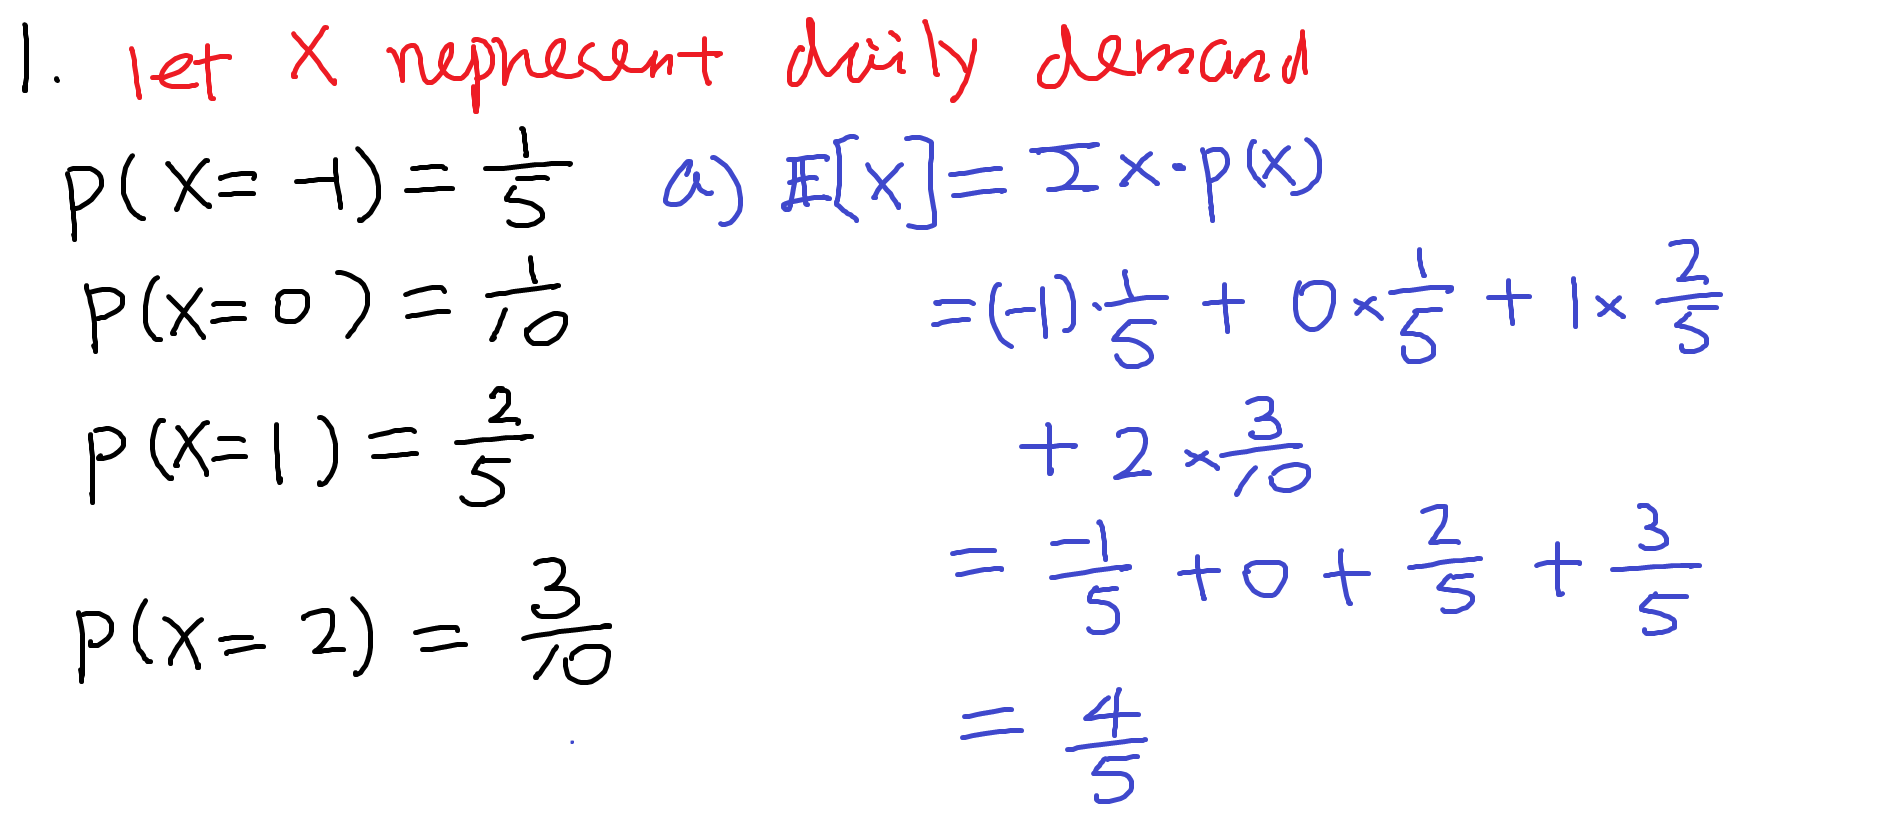 1. let X represent daily demand
P(X= -1) = 1/5
P(X= 0) = 1/10
P(X=1) = 2/5
P(X= 2) = 3/10
a) E[X] = Σ x·p(x)
=(-1)·1/5 + 0×1/5 + 1×2/5
+ 2×3/10
= -1/5 +0+ 2/5 + 3/5
= 4/5